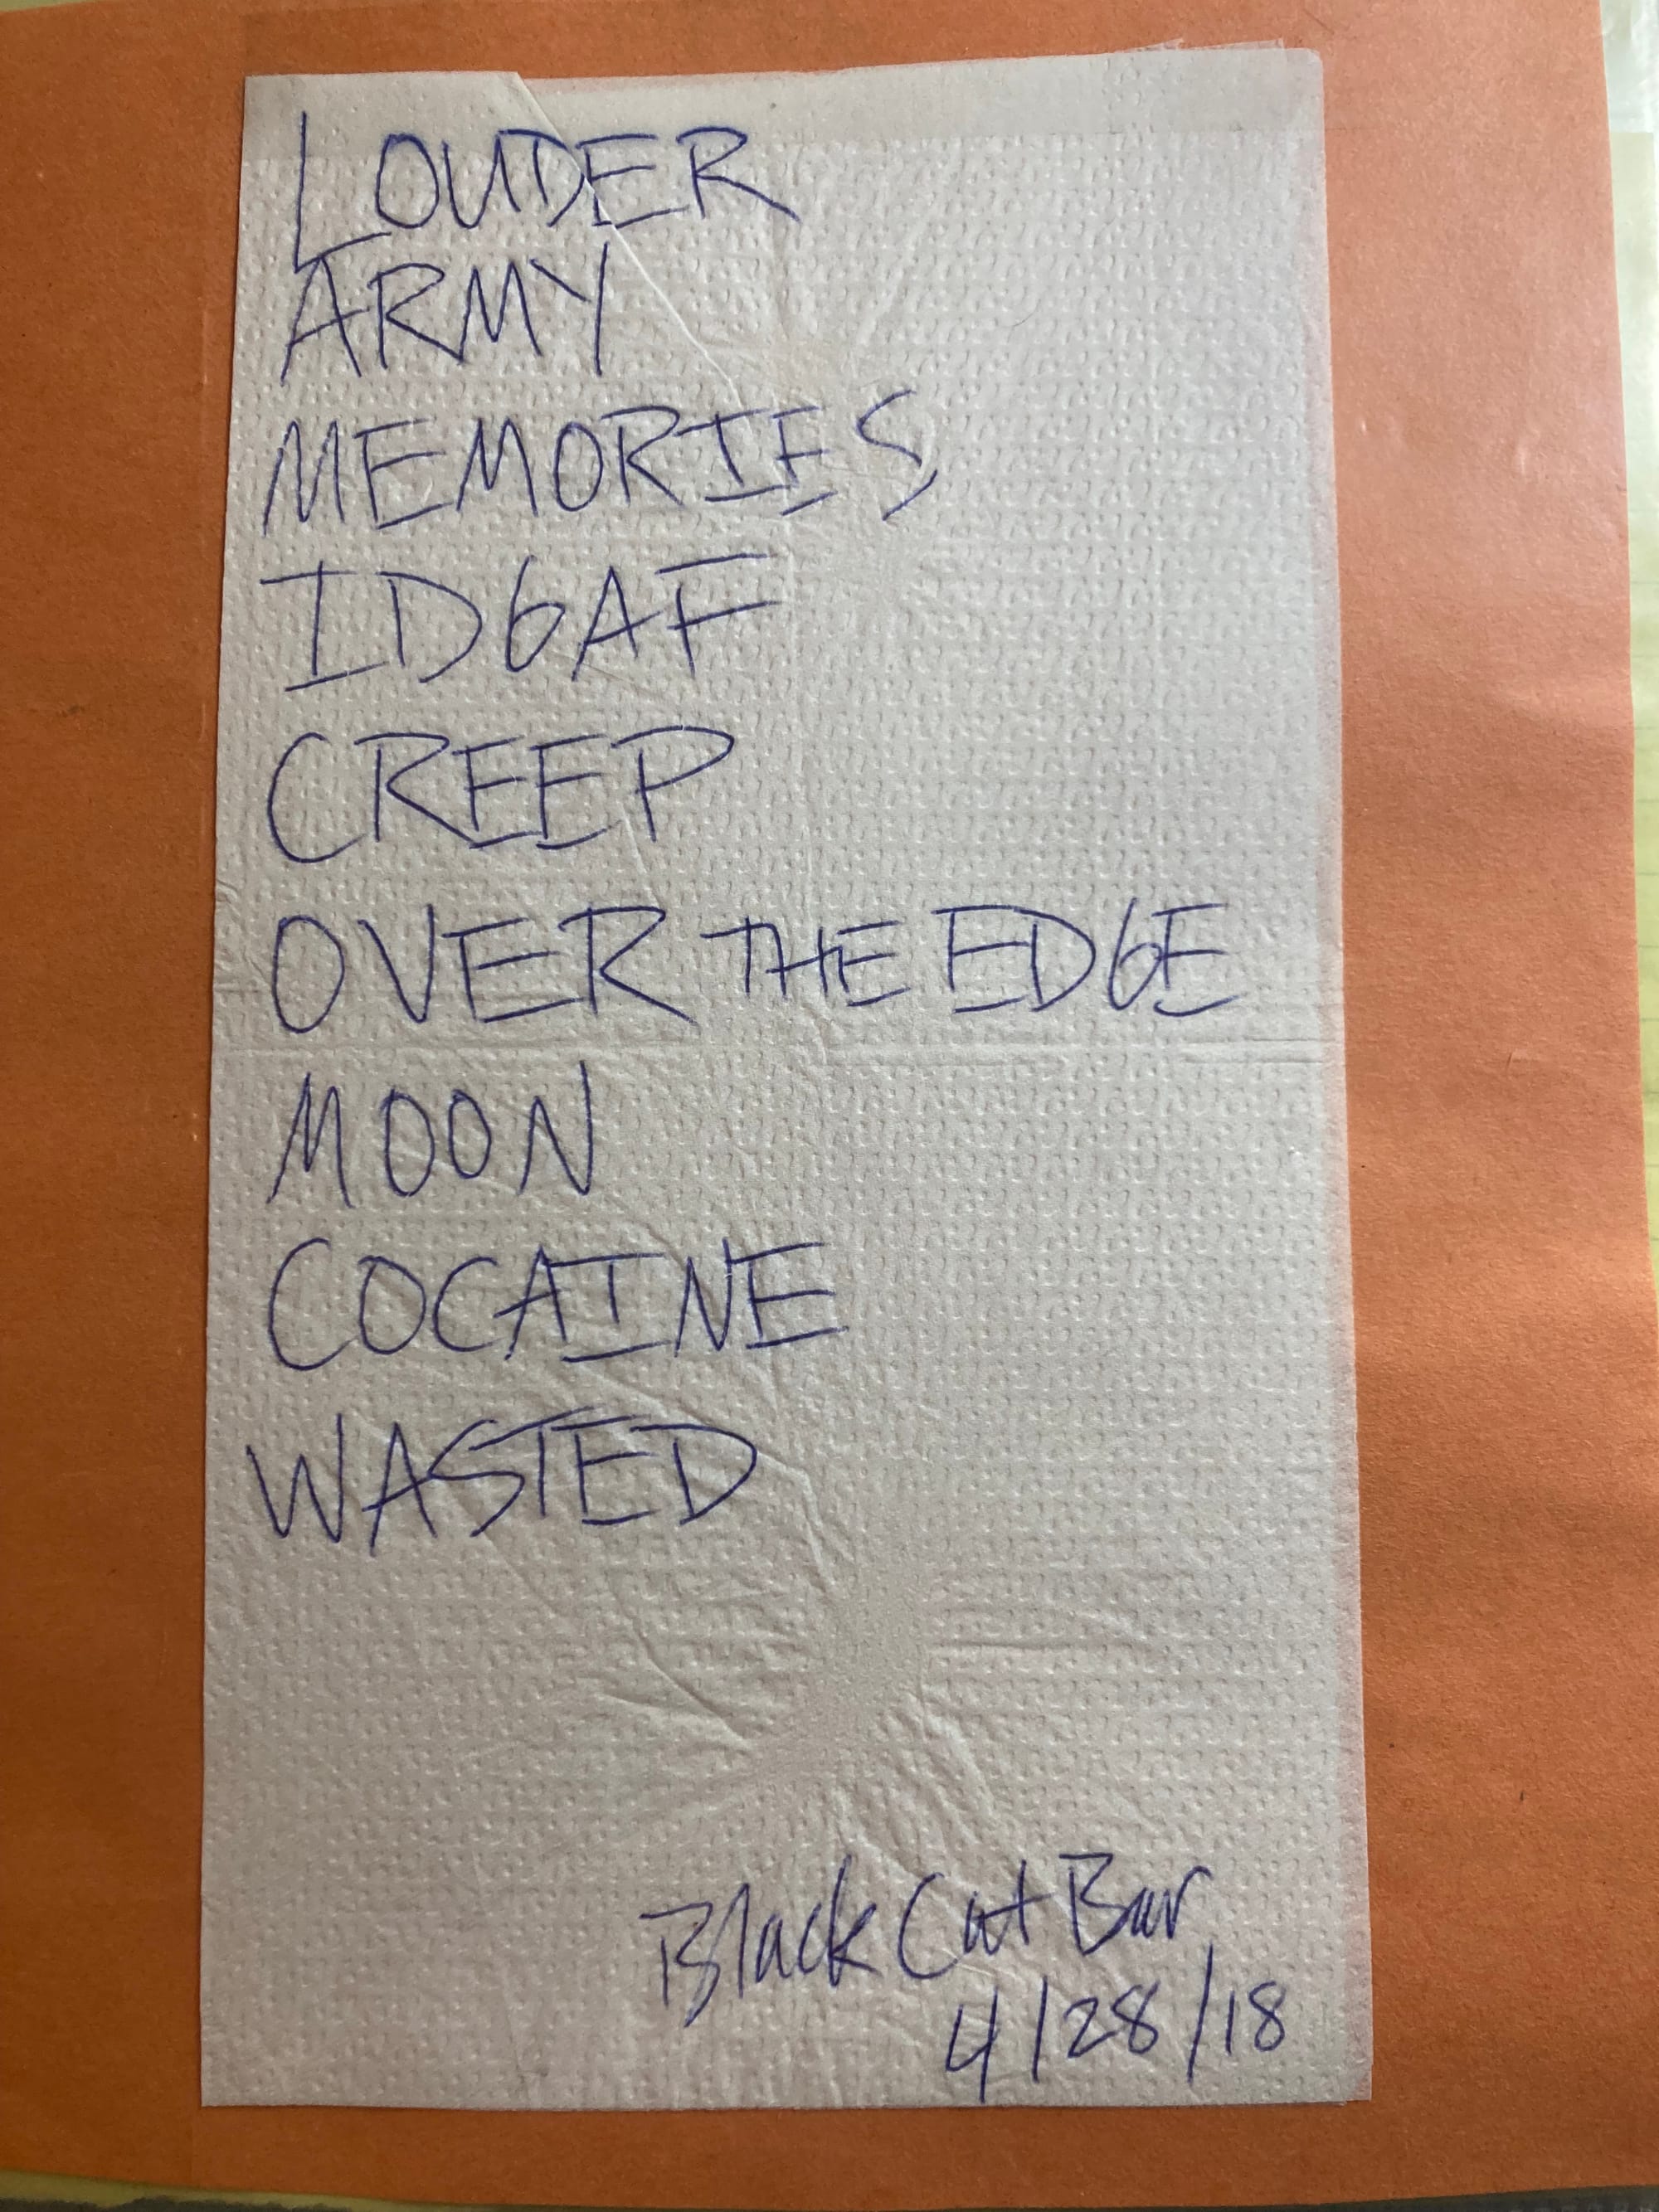 LOUDER
ARMY
MEMORIES
IDGAF
CREEP
OVER THE EDGE
MOON
COCAINE
WASTED
Black Cat Bar
4/28/18